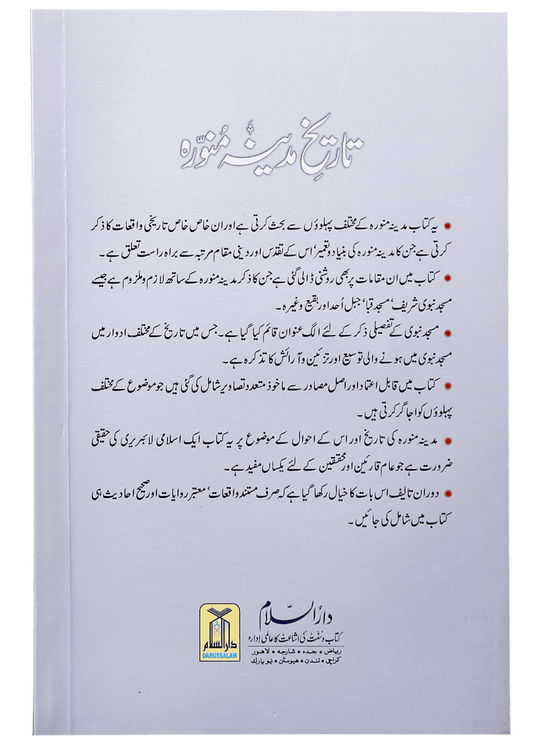 تاریخ مدینہ منوّرہ
یہ کتاب مدینہ منورہ کے مختلف پہلوؤں سے بحث کرتی ہے اور ان خاص خاص تاریخی واقعات کا ذکر
کرتی ہے جن کا مدینہ منورہ کی بنیاد و تعمیر، اس کے تقدس اور دینی مقام مرتبہ سے براہ راست تعلق ہے۔
کتاب میں ان مقامات پر بھی روشنی ڈالی گئی ہے جن کا ذکر مدینہ منورہ کے ساتھ لازم و ملزوم ہے جیسے
مسجد نبوی شریف، مسجد قبا، جبل اُحد اور بقیع وغیرہ۔
مسجد نبوی کے تفصیلی ذکر کے لئے الگ عنوان قائم کیا گیا ہے۔ جس میں تاریخ کے مختلف ادوار میں
مسجد نبوی میں ہونے والی توسیع اور تزئین و آرائش کا تذکرہ ہے۔
کتاب میں قابل اعتماد اور اصل مصادر سے ماخوذ متعدد تصاویر شامل کی گئی ہیں جو موضوع کے مختلف
پہلوؤں کو اجاگر کرتی ہیں۔
مدینہ منورہ کی تاریخ اور اس کے احوال کے موضوع پر یہ کتاب ایک اسلامی لائبریری کی حقیقی
ضرورت ہے جو عام قارئین اور محققین کے لئے یکساں مفید ہے۔
دوران تالیف اس بات کا خیال رکھا گیا ہے کہ صرف مستند واقعات، معتبر روایات اور صحیح احادیث ہی
کتاب میں شامل کی جائیں۔
دارالسّلام
کتاب و سنت کی اشاعت کا عالمی ادارہ
ریاض • جدہ • شارجہ • لاہور
کراچی • لندن • ہیوسٹن • نیویارک
دارالسلام
DARUSSALAM